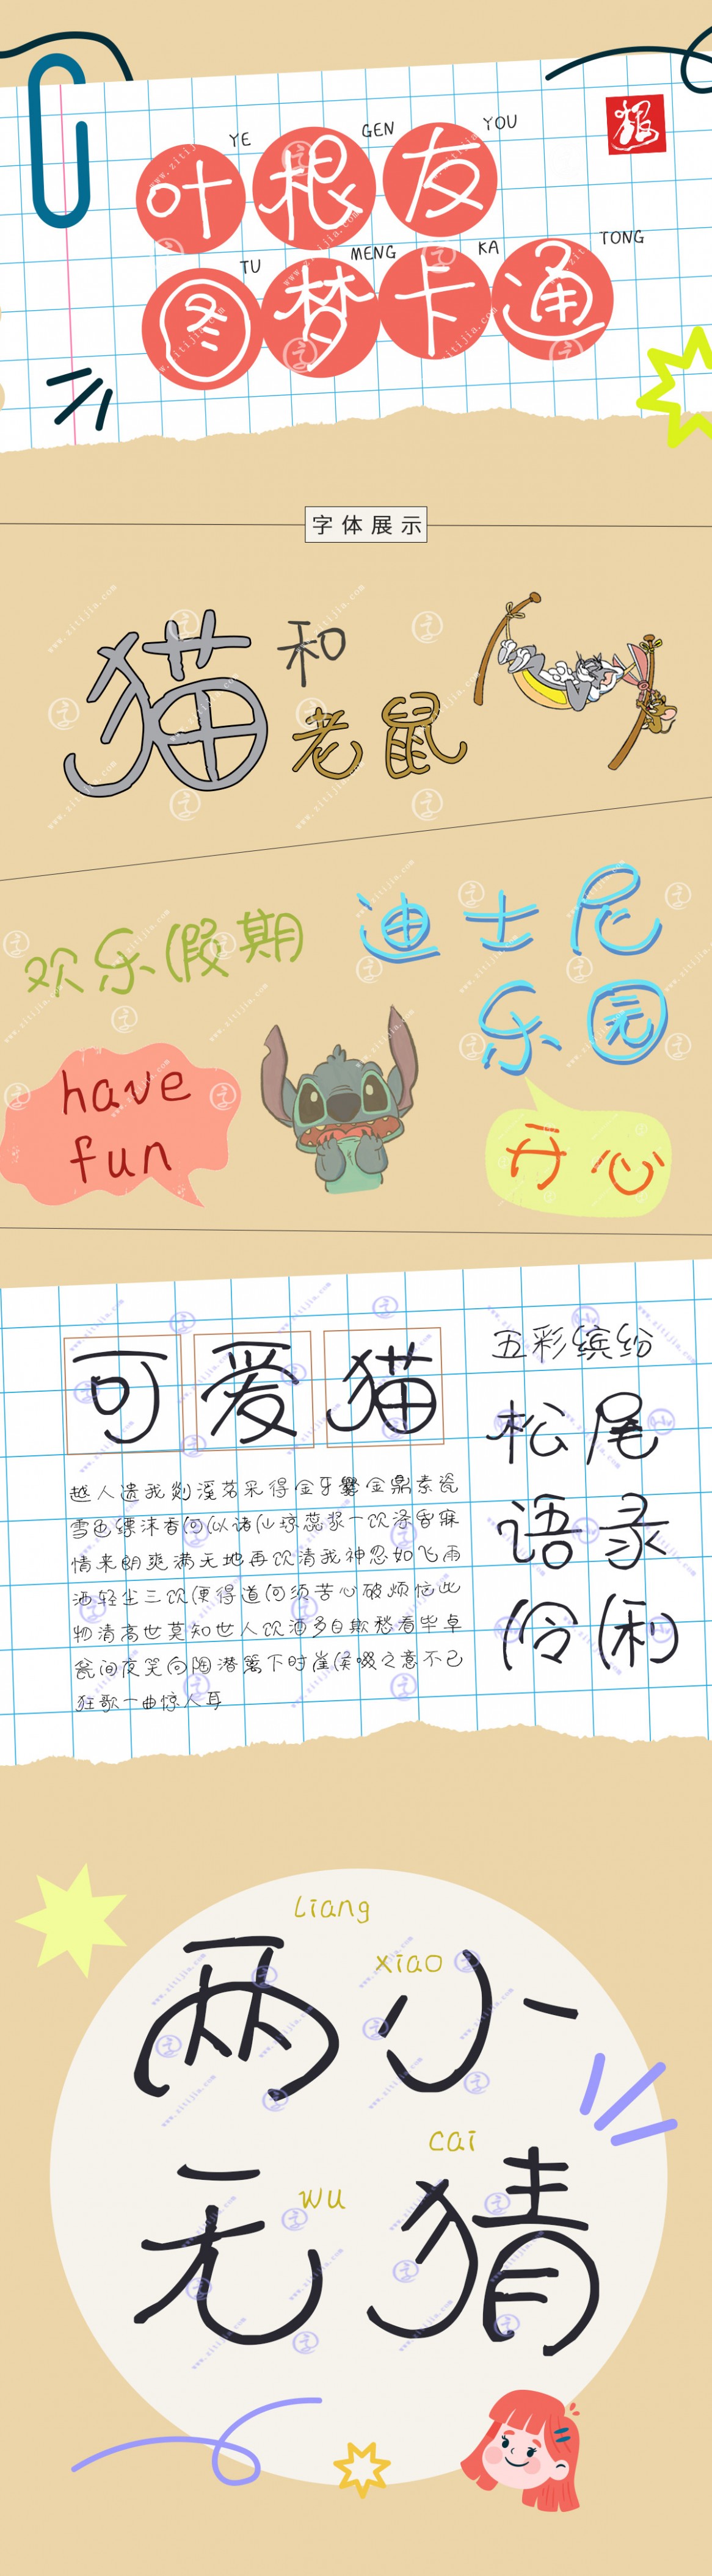 YE GEN YOU
叶根友
TU MENG KA TONG
图梦卡通
根
字体展示
猫和
老鼠
欢乐假期
迪士尼
乐园
have
fun
开心
可爱猫
五彩缤纷
松尾
语录
伶俐
越人遗我剡溪茗采得金牙爨金鼎素瓷
雪色缥沫香何似诸仙琼蕊浆一饮涤昏寐
情来朗爽满天地再饮清我神忽如飞雨
洒轻尘三饮便得道何须苦心破烦恼此
物清高世莫知世人饮酒多自欺愁看毕卓
瓮间夜笑向陶潜篱下时崔侯啜之意不已
狂歌一曲惊人耳
Liang
xiao
两小
cai
wu
无猜
www.zitijia.com